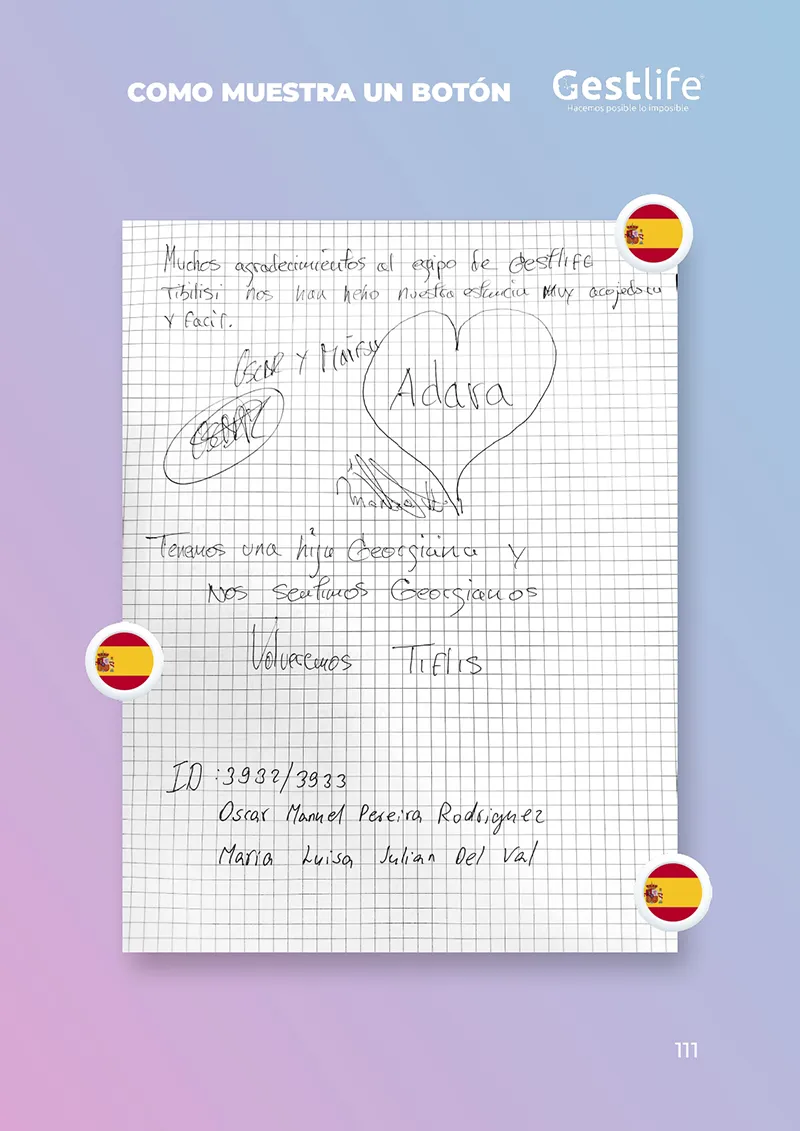 COMO MUESTRA UN BOTÓN
Gestlife
Hacemos posible lo imposible
Muchos agradecimientos al eqipo de Gestlife
Tibilisi nos han heho nuestra estancia muy acojedora
y facil.
Oscar y Marisu
Adara
Tenemos una hija Georgiana y
Nos sentimos Georgianos
Volveremos Tiflis
ID: 3932/3933
Oscar Manuel Pereira Rodriguez
Maria Luisa Julian Del Val
111